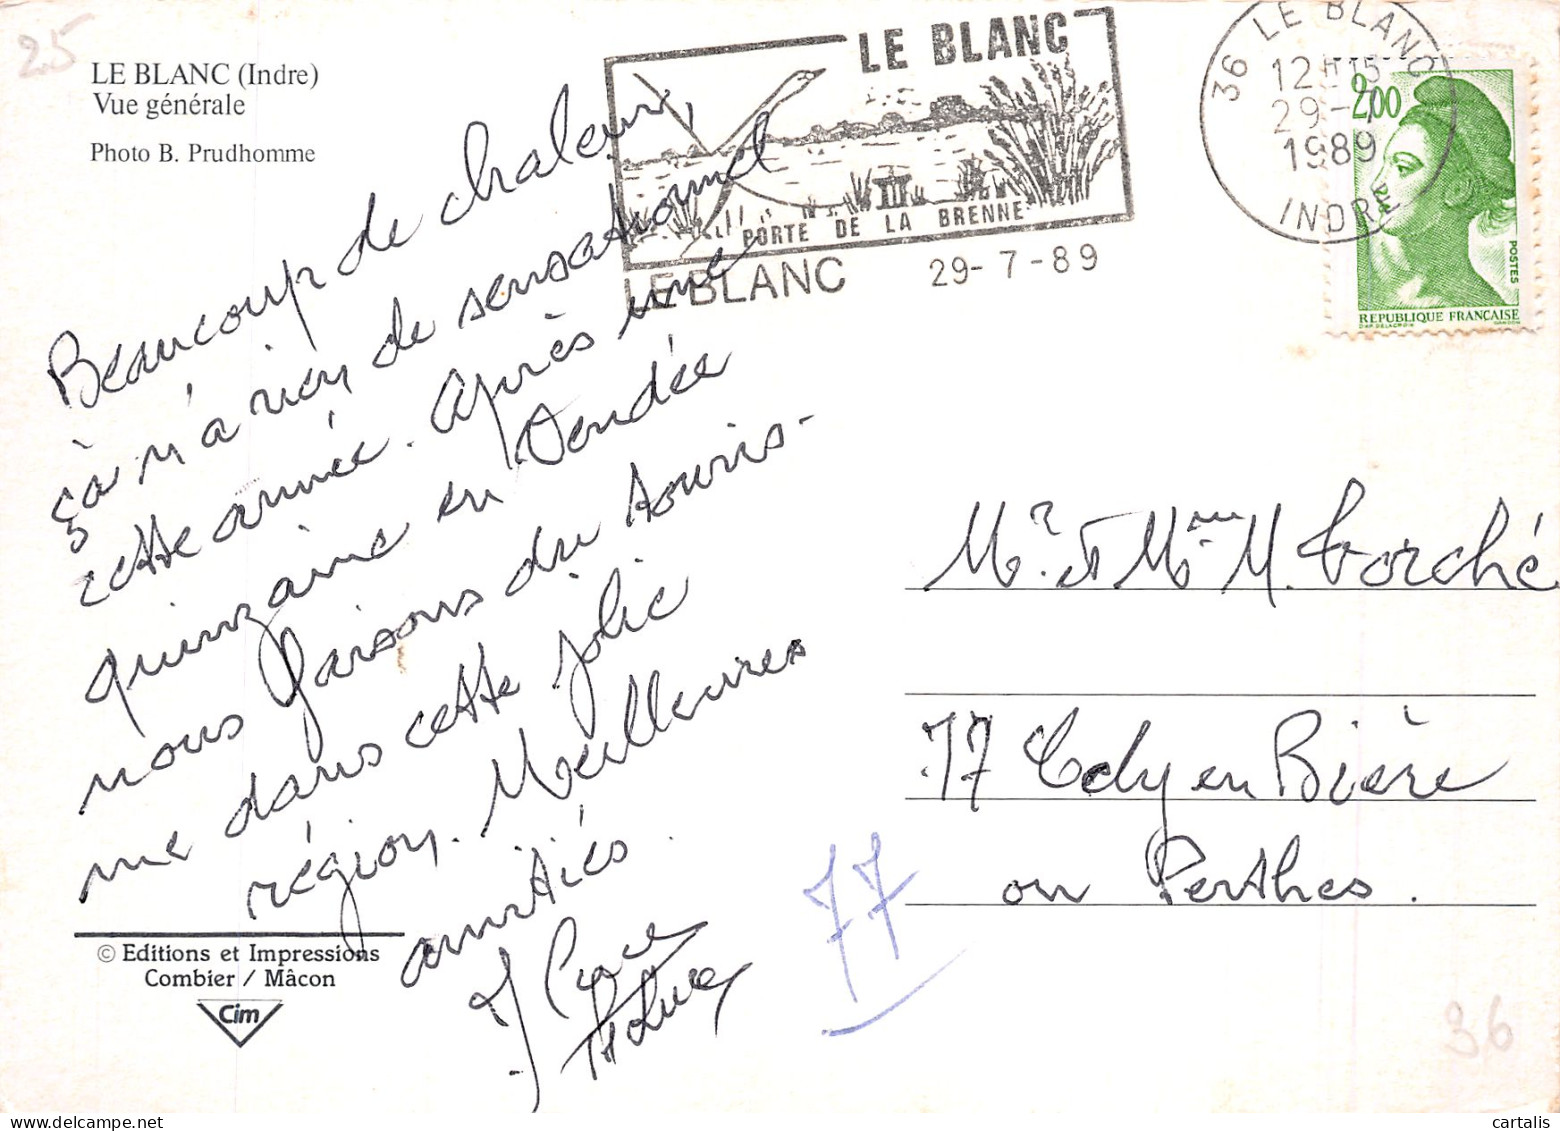 25
LE BLANC (Indre)
Vue générale
Photo B. Prudhomme
LE BLANC
PORTE DE LA BRENNE
LE BLANC 29-7-89
36 LE BLANC
12H15
29-7
1989
INDRE
2,00
POSTES
REPUBLIQUE FRANÇAISE
D'AP. DELACROIX GANDON
Beaucoup de chaleur,
çà n'a rien de sensationnel
cette année. Après une
quinzaine en Vendée
nous faisons du touris-
me dans cette jolie
région. Meilleures
amitiés.
Mr. et Mme M. Torché
77 Cely en Bière
ou Perthes.
77
© Editions et Impressions
Combier / Mâcon
Cim
36
cartalis